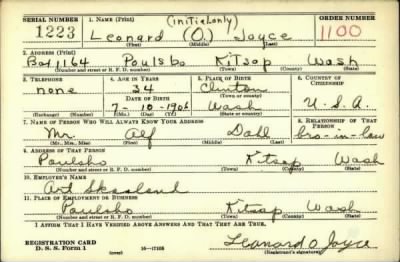 SERIAL NUMBER 1. NAME (Print) (initial only) ORDER NUMBER
1223 Leonard (O.) Joyce 1100
(First) (Middle) (Last)
2. ADDRESS (Print)
Box 1164 Poulsbo Kitsap Wash
(Number and street or R. F. D. number) (Town) (County) (State)
3. TELEPHONE 4. AGE IN YEARS 5. PLACE OF BIRTH 6. COUNTRY OF CITIZENSHIP
none 34 Clinton
DATE OF BIRTH (Town or county)
7-10-1906 Wash U.S.A.
(Exchange) (Number) (Mo.) (Day) (Yr.) (State or country)
7. NAME OF PERSON WHO WILL ALWAYS KNOW YOUR ADDRESS 8. RELATIONSHIP OF THAT PERSON
Mr. Alf Dahl bro-in-law
(Mr., Mrs., Miss) (First) (Middle) (Last)
9. ADDRESS OF THAT PERSON
Poulsbo Kitsap Wash
(Number and street or R. F. D. number) (Town) (County) (State)
10. EMPLOYER'S NAME
Art
11. PLACE OF EMPLOYMENT OR BUSINESS
Poulsbo Kitsap Wash
(Number and street or R. F. D. number) (Town) (County) (State)
I AFFIRM THAT I HAVE VERIFIED ABOVE ANSWERS AND THAT THEY ARE TRUE.
REGISTRATION CARD
D. S. S. Form 1 (over) 16—17105 Leonard O Joyce
(Registrant's signature)